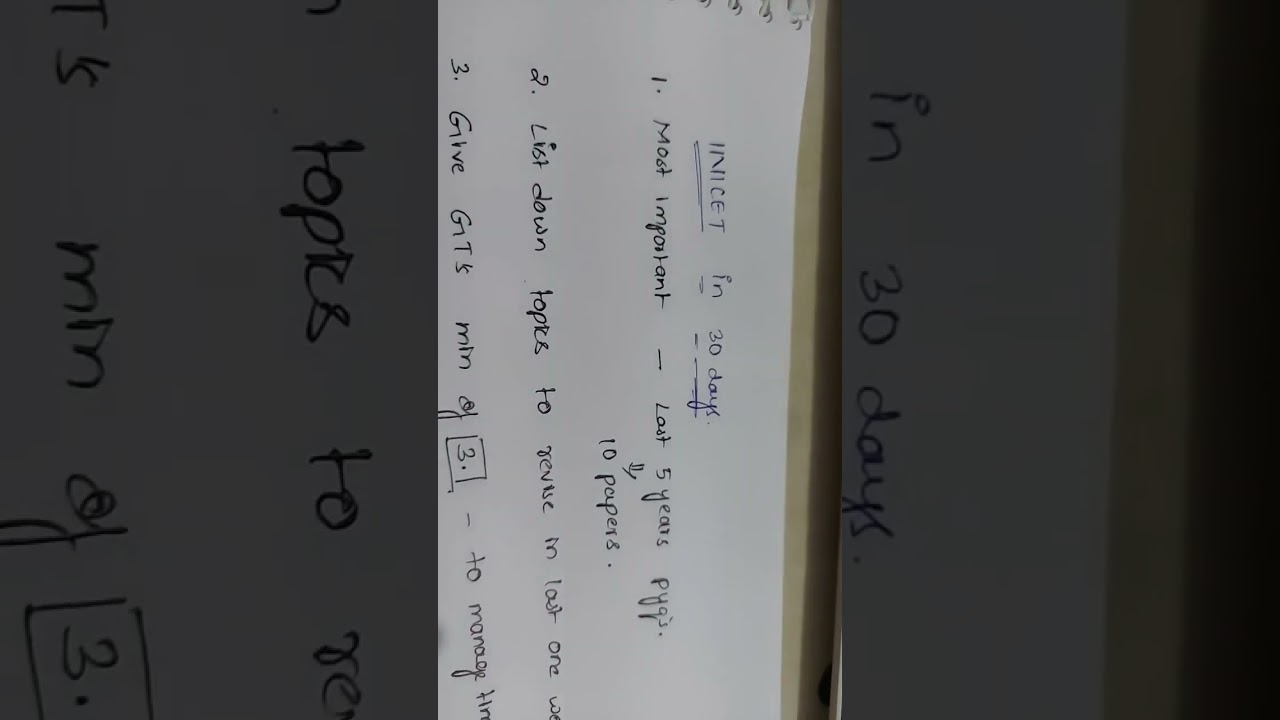 INICET in 30 days.
1. Most important - Last 5 years pyq's.
10 papers.
2. List down topics to revise in last one we
3. Give GT's min of 3. - to manage tim